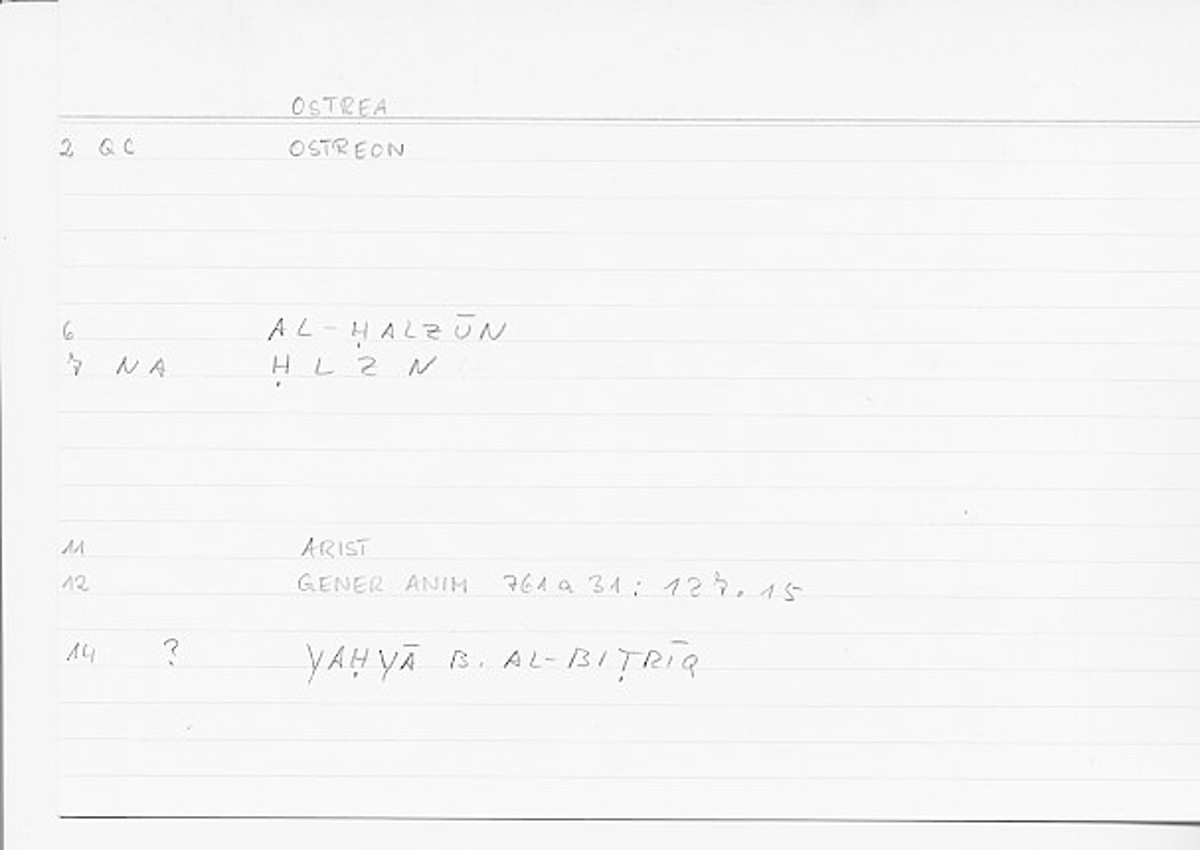 OSTREA
2 QC OSTREON
6 AL-ḤALZŪN
7 NA ḤLZN
11 ARIST
12 GENER ANIM 761a31: 127.15
14 ? YAḤYĀ B. AL-BIṬRĪQ